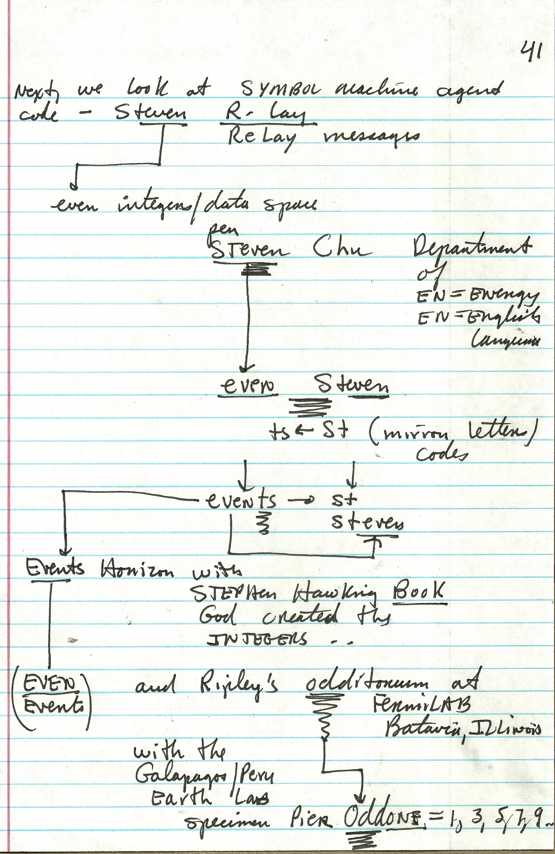 41
Next, we look at SYMBOL machine agend
code - Steven R- Lay
ReLay messages
even integers/data space
pen
STeven Chu Department
of
EN = ENergy
EN = English
language
even Steven
ts ← St (mirror letters)
codes
events → st
Steven
Events Horizon with
STEPHen Hawking BOOK
God created the
INTEGERS ..
(EVEN Events)
and Ripley's odditorium at
FermiLAB
Batavia, ILLinois
with the
Galapagos/Peru
Earth Labs
specimen Pier OddONE = 1, 3, 5, 7, 9..